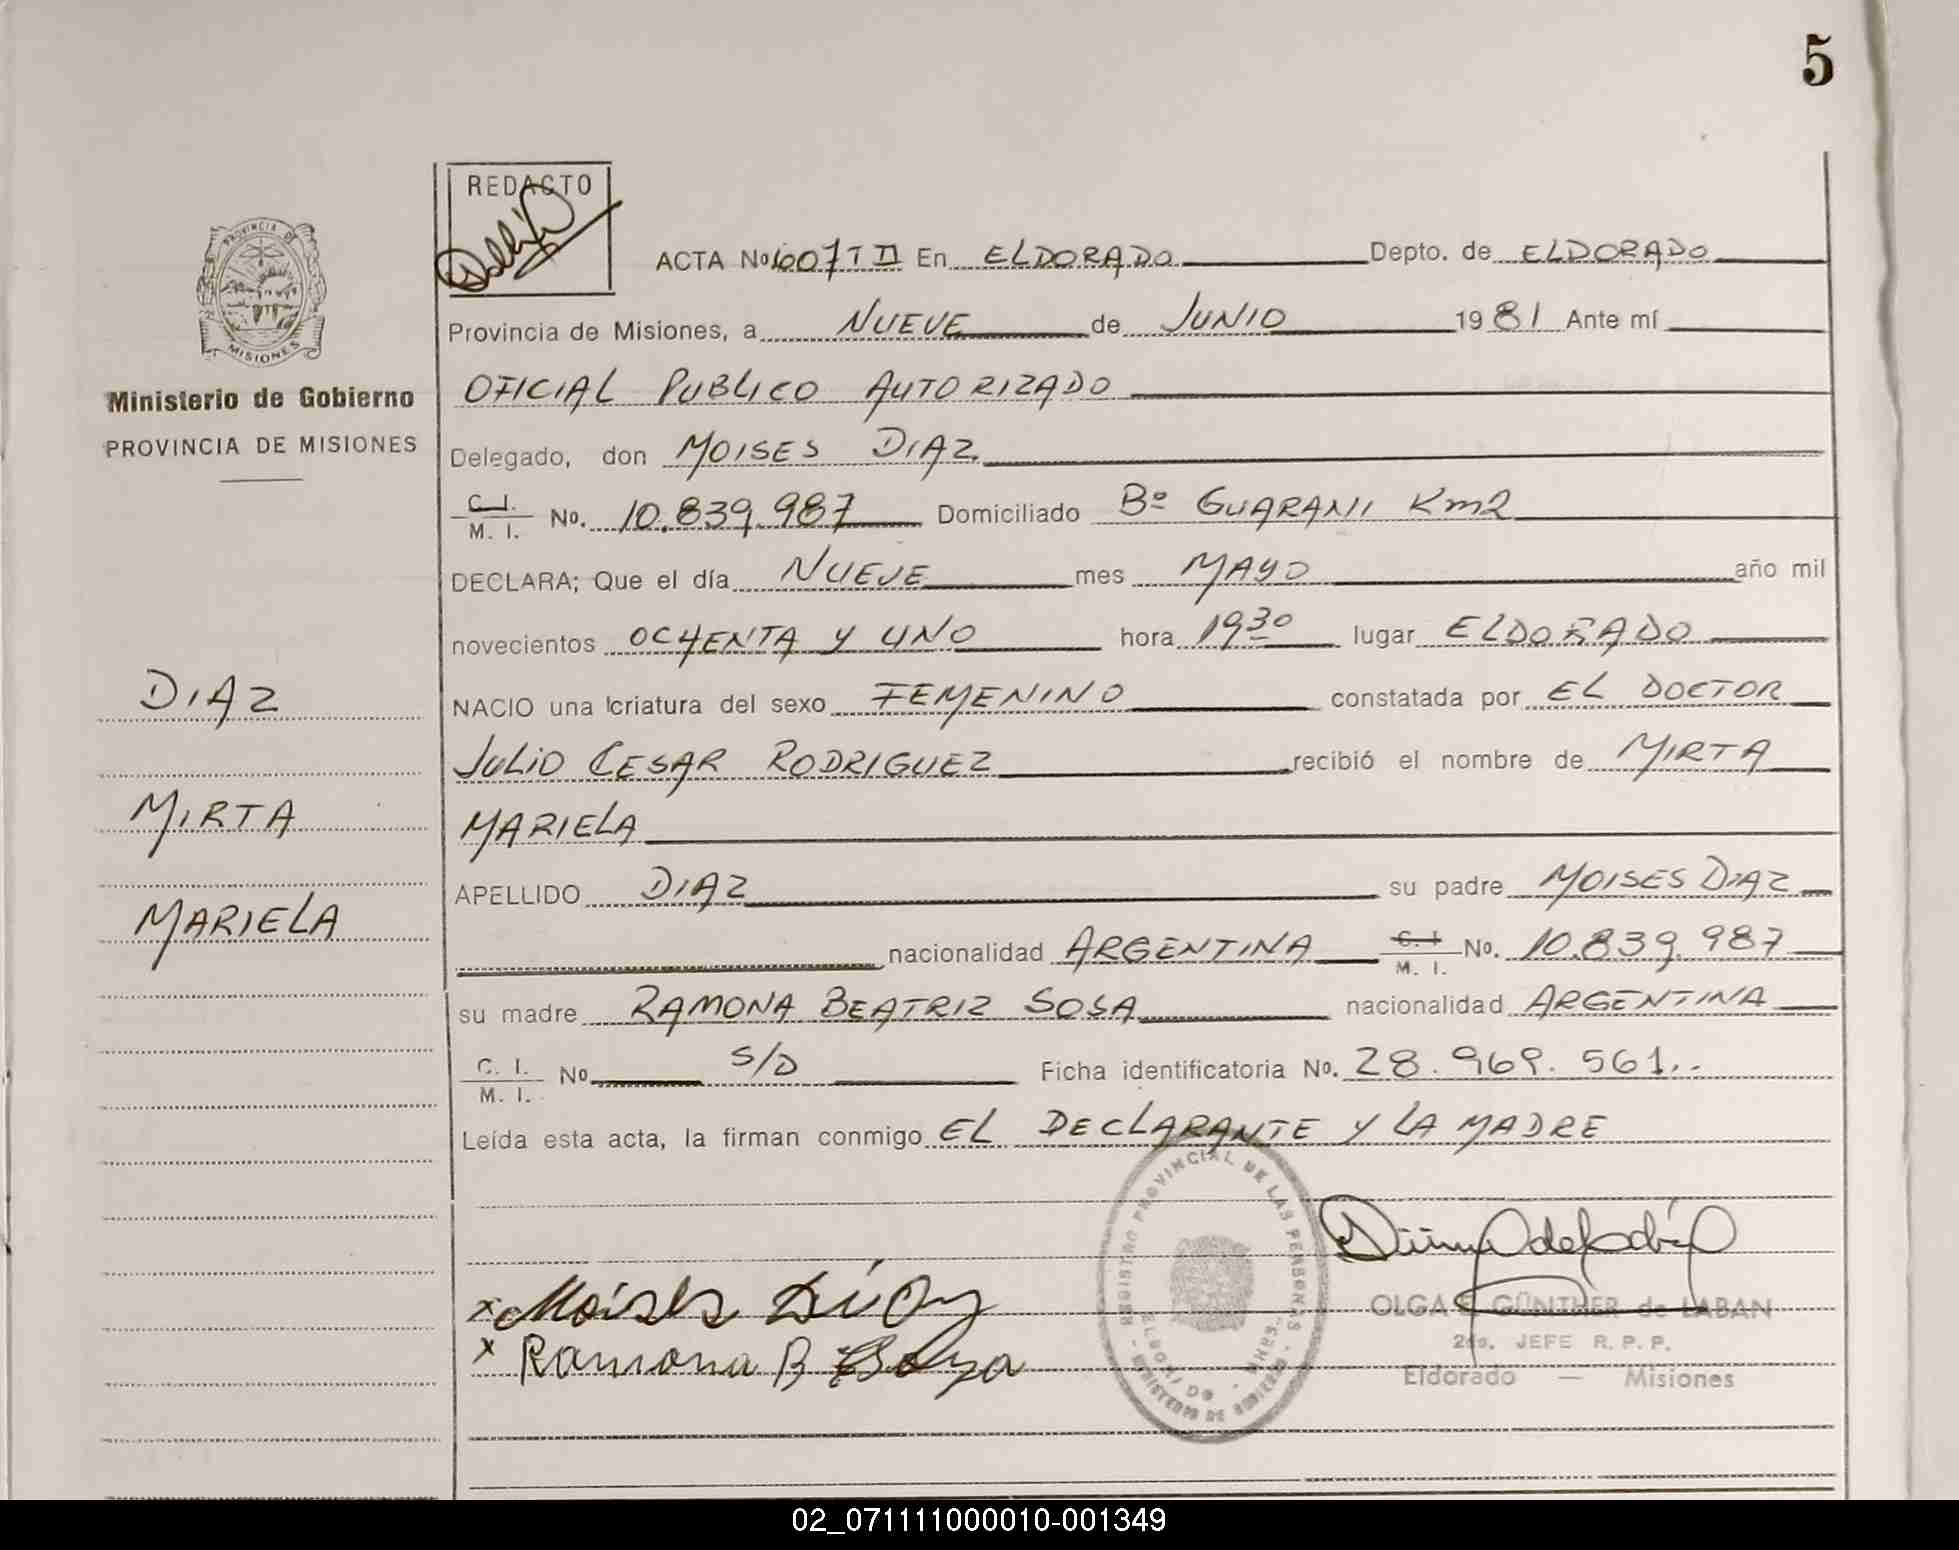 5
REDACTO
PROVINCIA DE
MISIONES
Ministerio de Gobierno
PROVINCIA DE MISIONES
ACTA No 607 T II En ELDORADO Depto. de ELDORADO
Provincia de Misiones, a NUEVE de JUNIO 1981 Ante mí
OFICIAL PUBLICO AUTORIZADO
Delegado, don MOISES DIAZ
C. I. / M. I. No. 10.839.987 Domiciliado Bº GUARANI Km2
DECLARA; Que el día NUEVE mes MAYO año mil
novecientos OCHENTA Y UNO hora 19 30 lugar ELDORADO
NACIO una criatura del sexo FEMENINO constatada por EL DOCTOR
JULIO CESAR RODRIGUEZ recibió el nombre de MIRTA
MARIELA
APELLIDO DIAZ su padre MOISES DIAZ
nacionalidad ARGENTINA C. I. / M. I. No. 10.839.987
su madre RAMONA BEATRIZ SOSA nacionalidad ARGENTINA
C. I. / M. I. No S/D Ficha identificatoria No. 28.969.561..
Leída esta acta, la firman conmigo EL DECLARANTE Y LA MADRE
DIAZ
MIRTA
MARIELA
x Moises Díaz
x Ramona B
REGISTRO PROVINCIAL DE LAS PERSONAS
ELDORADO - MNES.
MINISTERIO DE GOBIERNO
OLGA E. GÜNTHER de LABAN
2do. JEFE R. P. P.
Eldorado — Misiones
02_071111000010-001349